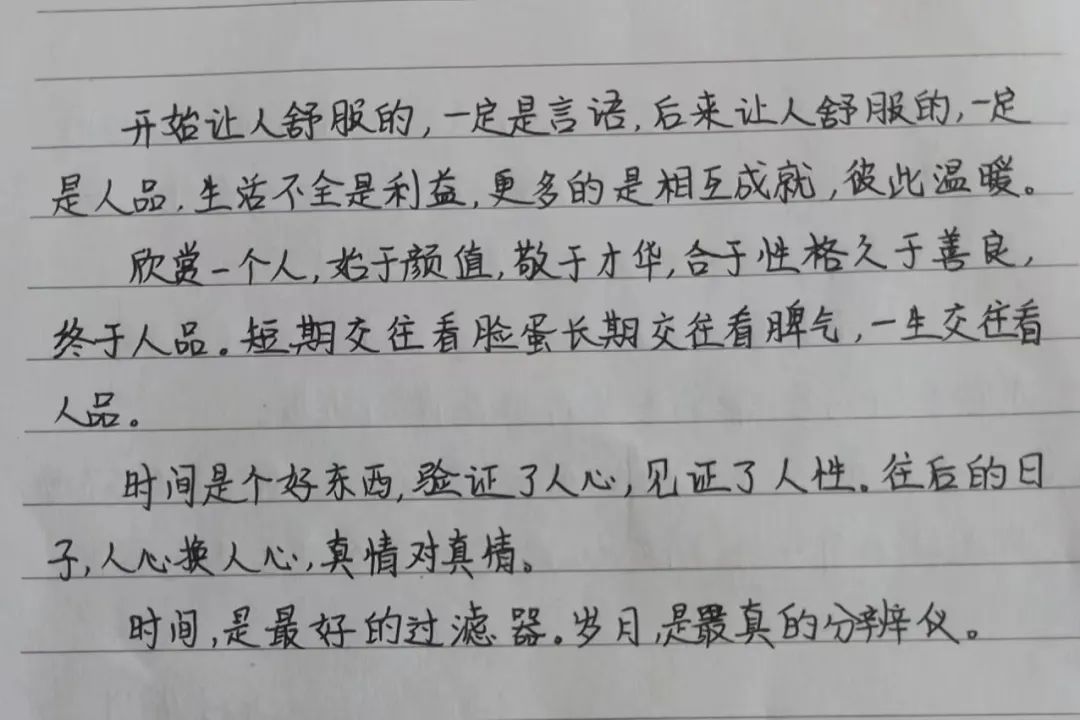 开始让人舒服的,一定是言语,后来让人舒服的,一定
是人品,生活不全是利益,更多的是相互成就,彼此温暖。
欣赏一个人,始于颜值,敬于才华,合于性格久于善良,
终于人品。短期交往看脸蛋长期交往看脾气,一生交往看
人品。
时间是个好东西,验证了人心,见证了人性。往后的日
子,人心换人心,真情对真情。
时间,是最好的过滤器。岁月,是最真的分辨仪。